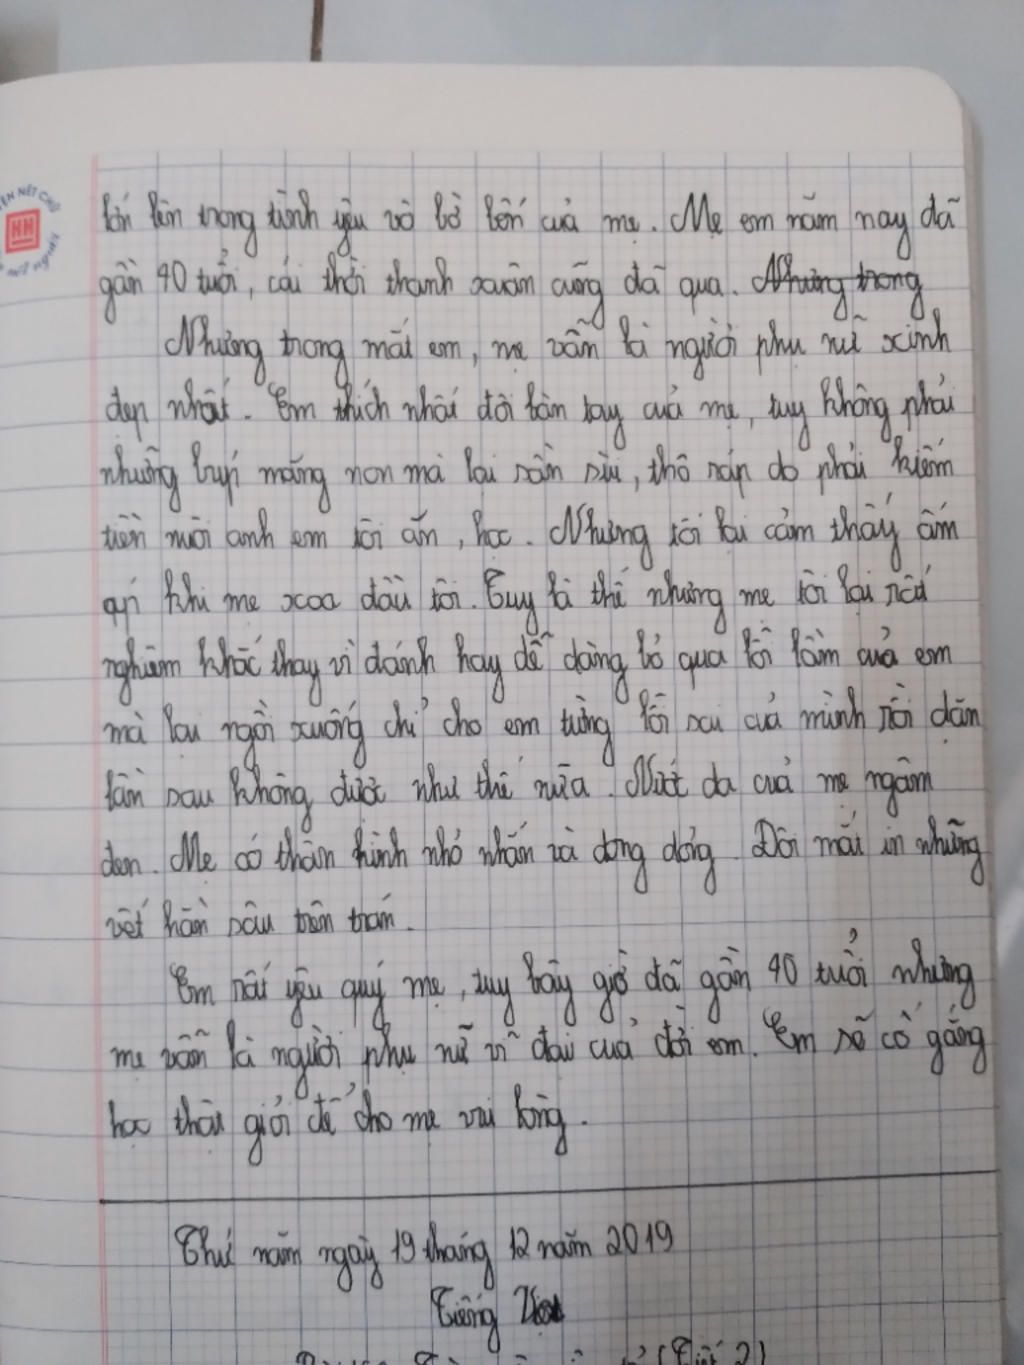 lớn lên trong tình yêu vô bờ bến của mẹ. Mẹ em năm nay đã
gần 40 tuổi, cái thời thanh xuân cũng đã qua. Nhưng trong
Nhưng trong mắt em, mẹ vẫn là người phụ nữ xinh
đẹp nhất. Em thích nhất đôi bàn tay của mẹ, tuy không phải
những búp măng non mà lại sần sùi, thô ráp do phải kiếm
tiền nuôi anh em tôi ăn, học. Nhưng tôi lại cảm thấy ấm
áp khi mẹ xoa đầu tôi. Tuy là thế nhưng mẹ tôi lại rất
nghiêm khắc thay vì đánh hay dễ dàng bỏ qua lỗi lầm của em
mà lại ngồi xuống chỉ cho em từng lỗi sai của mình rồi dặn
lần sau không được như thế nữa. Nước da của mẹ ngăm
đen. Mẹ có thân hình nhỏ nhắn và dong dỏng. Đôi mắt in những
vết hằn sâu trên trán.
Em rất yêu quý mẹ, tuy bây giờ đã gần 40 tuổi nhưng
mẹ vẫn là người phụ nữ vĩ đại của đời em. Em sẽ cố gắng
học thật giỏi để cho mẹ vui lòng.
Thứ năm ngày 19 tháng 12 năm 2019
Tiếng Việt
(Tiết 2)
NÉT CHỮ
HH